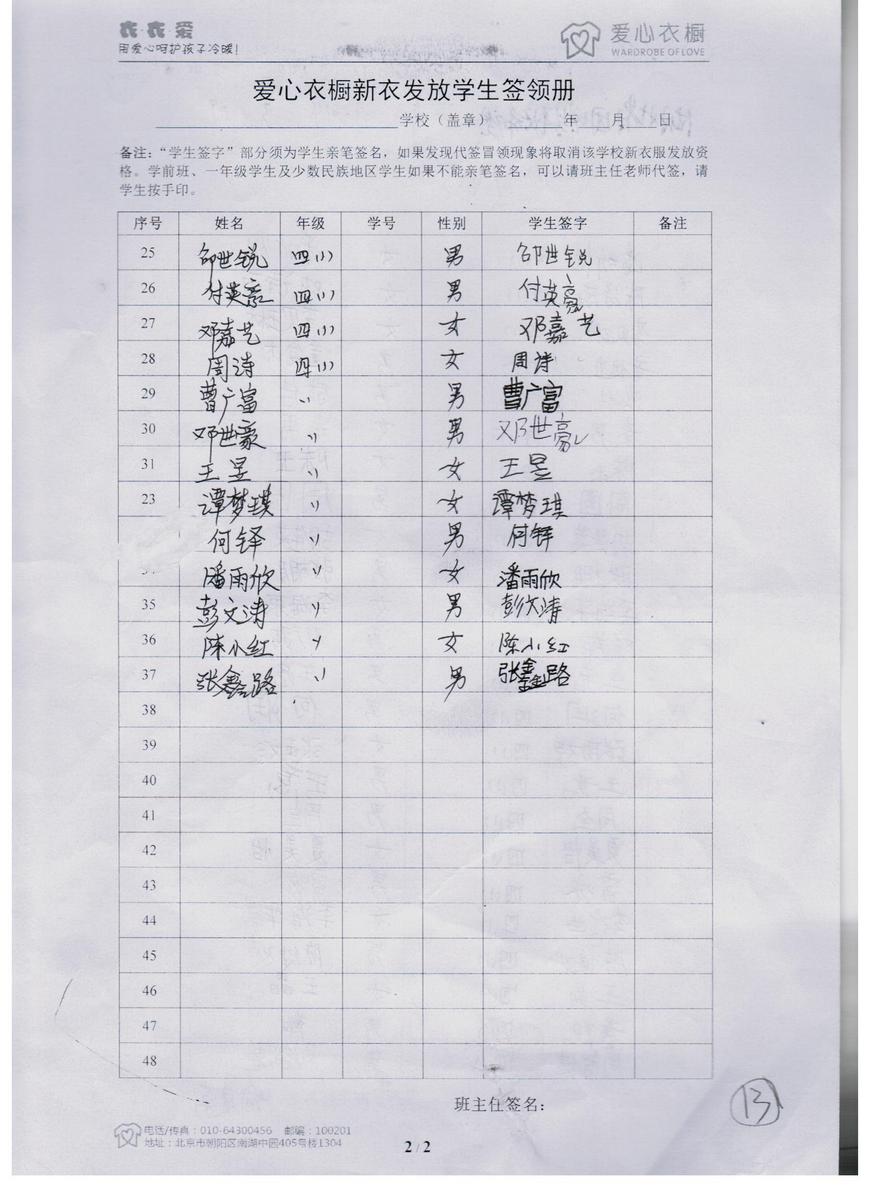 衣·衣·爱
用爱心呵护孩子冷暖!
爱心衣橱
WARDROBE OF LOVE
爱心衣橱新衣发放学生签领册
学校（盖章） 年 月 日
备注：“学生签字”部分须为学生亲笔签名，如果发现代签冒领现象将取消该学校新衣服发放资
格。学前班、一年级学生及少数民族地区学生如果不能亲笔签名，可以请班主任老师代签，请
学生按手印。
序号 姓名 年级 学号 性别 学生签字 备注
25 邵世锐 四(1) 男 邵世锐
26 付英豪 四(1) 男 付英豪
27 邓嘉艺 四(1) 女 邓嘉艺
28 周诗 四(1) 女 周诗
29 曹广富 〃 男 曹广富
30 邓世豪 〃 男 邓世豪
31 王昱 〃 女 王昱
23 谭梦琪 〃 女 谭梦琪
何铎 〃 男 何铎
潘雨欣 〃 女 潘雨欣
35 彭文涛 〃 男 彭文涛
36 陈小红 〃 女 陈小红
37 张鑫路 〃 男 张鑫路
38
39
40
41
42
43
44
45
46
47
48
班主任签名：
13
电话/传真：010-64300456 邮编：100201
地址：北京市朝阳区南湖中园405号楼1304
2 / 2